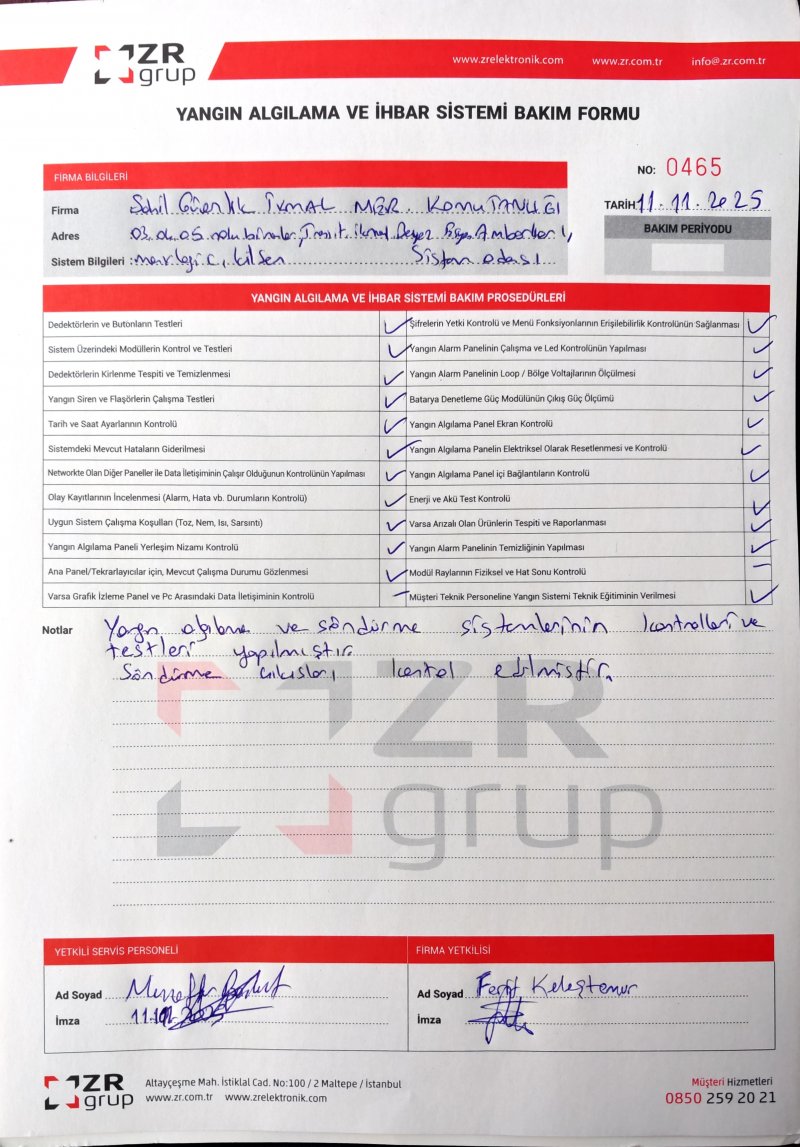 ZR
grup
www.zrelektronik.com www.zr.com.tr info@.zr.com.tr
YANGIN ALGILAMA VE İHBAR SİSTEMİ BAKIM FORMU
FİRMA BİLGİLERİ
NO: 0465
Firma Sahil Güvenlik İKMAL MRZ. KOMUTANLIĞI
TARİH 11.11.2025
Adres 03.04.05 nolu binalar, Transit. ikmal
BAKIM PERİYODU
Sistem Bilgileri : Sistem odası
YANGIN ALGILAMA VE İHBAR SİSTEMİ BAKIM PROSEDÜRLERİ
Dedektörlerin ve Butonların Testleri ✓ Şifrelerin Yetki Kontrolü ve Menü Fonksiyonlarının Erişilebilirlik Kontrolünün Sağlanması ✓
Sistem Üzerindeki Modüllerin Kontrol ve Testleri ✓ Yangın Alarm Panelinin Çalışma ve Led Kontrolünün Yapılması ✓
Dedektörlerin Kirlenme Tespiti ve Temizlenmesi ✓ Yangın Alarm Panelinin Loop / Bölge Voltajlarının Ölçülmesi ✓
Yangın Siren ve Flaşörlerin Çalışma Testleri ✓ Batarya Denetleme Güç Modülünün Çıkış Güç Ölçümü ✓
Tarih ve Saat Ayarlarının Kontrolü ✓ Yangın Algılama Panel Ekran Kontrolü ✓
Sistemdeki Mevcut Hataların Giderilmesi ✓ Yangın Algılama Panelin Elektriksel Olarak Resetlenmesi ve Kontrolü ✓
Networkte Olan Diğer Paneller ile Data İletişiminin Çalışır Olduğunun Kontrolünün Yapılması ✓ Yangın Algılama Panel içi Bağlantıların Kontrolü ✓
Olay Kayıtlarının İncelenmesi (Alarm, Hata vb. Durumların Kontrolü) ✓ Enerji ve Akü Test Kontrolü ✓
Uygun Sistem Çalışma Koşulları (Toz, Nem, Isı, Sarsıntı) ✓ Varsa Arızalı Olan Ürünlerin Tespiti ve Raporlanması ✓
Yangın Algılama Paneli Yerleşim Nizamı Kontrolü ✓ Yangın Alarm Panelinin Temizliğinin Yapılması ✓
Ana Panel/Tekrarlayıcılar için, Mevcut Çalışma Durumu Gözlenmesi ✓ Modül Raylarının Fiziksel ve Hat Sonu Kontrolü –
Varsa Grafik İzleme Panel ve Pc Arasındaki Data İletişiminin Kontrolü – Müşteri Teknik Personeline Yangın Sistemi Teknik Eğitiminin Verilmesi ✓
Notlar Yangın algılama ve söndürme sistemlerinin kontrolleri ve
testleri yapılmıştır.
Söndürme çıkışları kontrol edilmiştir.
ZR
grup
YETKİLİ SERVİS PERSONELİ FİRMA YETKİLİSİ
Ad Soyad Ad Soyad Ferit Keleştemur
İmza 11.11.2025 İmza
ZR
grup
Altayçeşme Mah. İstiklal Cad. No:100 / 2 Maltepe / İstanbul
www.zr.com.tr www.zrelektronik.com
Müşteri Hizmetleri
0850 259 20 21